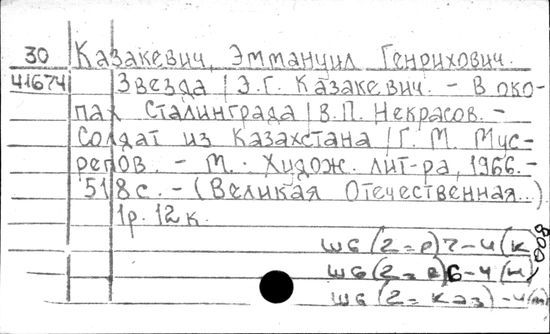 30 Казакевич, Эммануил Генрихович.
41674 Звезда / Э.Г. Казакевич. - В око-
пах Сталинграда / В.П. Некрасов. -
Солдат из Казахстана / Г. М. Мус-
репов. - М. : Худож. лит-ра, 1966. -
518 с. - (Великая Отечественная...)
1р. 12 к.
Ш6(2=Р)7-4(К
Ш6(2=Р)6-4(Н)
Ш6(2=Каз)-4(М)